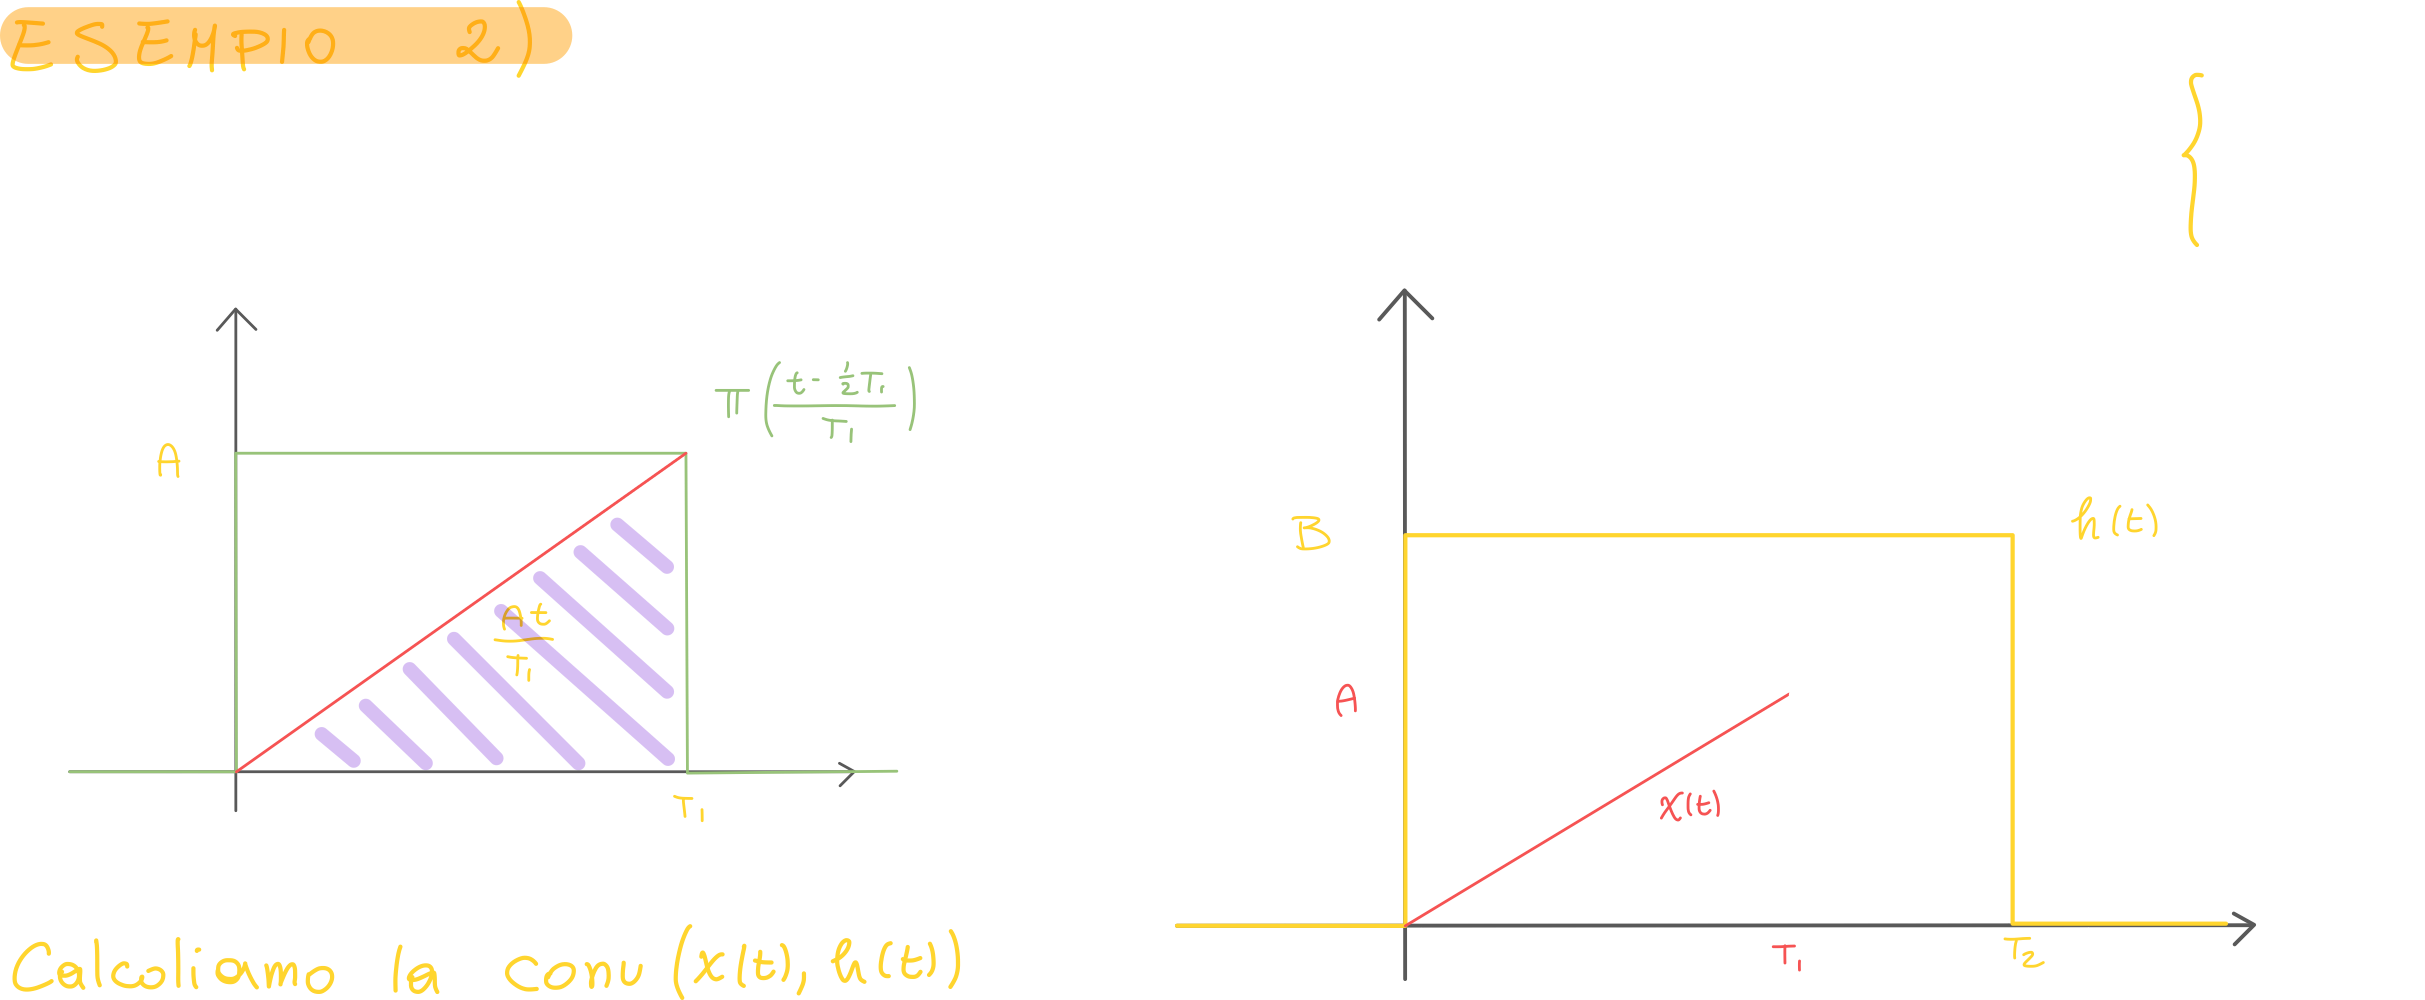 ESEMPIO 2)
{
π(t - ½T₁ / T₁)
A
At / T₁
T₁
B
h(t)
A
x(t)
T₁
T₂
Calcoliamo la conv (x(t), h(t))